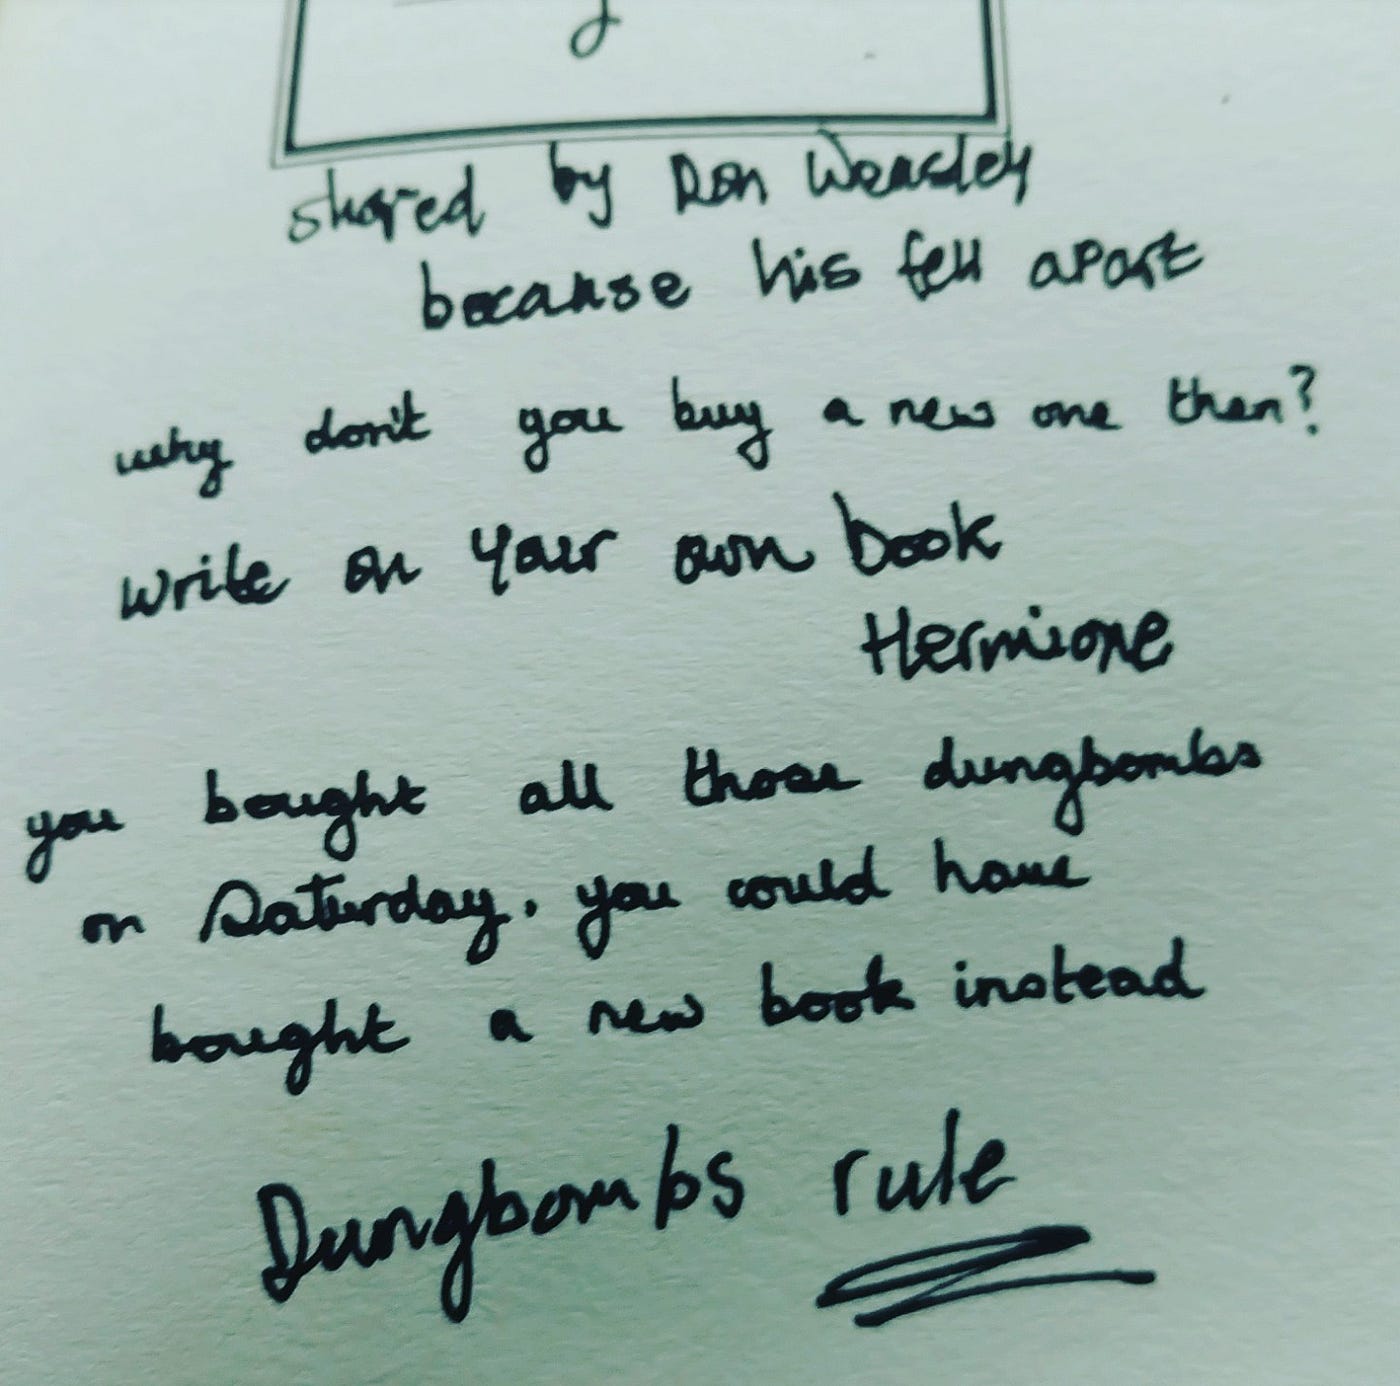 shared by Ron Weasley
because his fell apart
why don't you buy a new one then?
write on your own book
Hermione
you bought all those dungbombs
on Saturday. you could have
bought a new book instead
Dungbombs rule